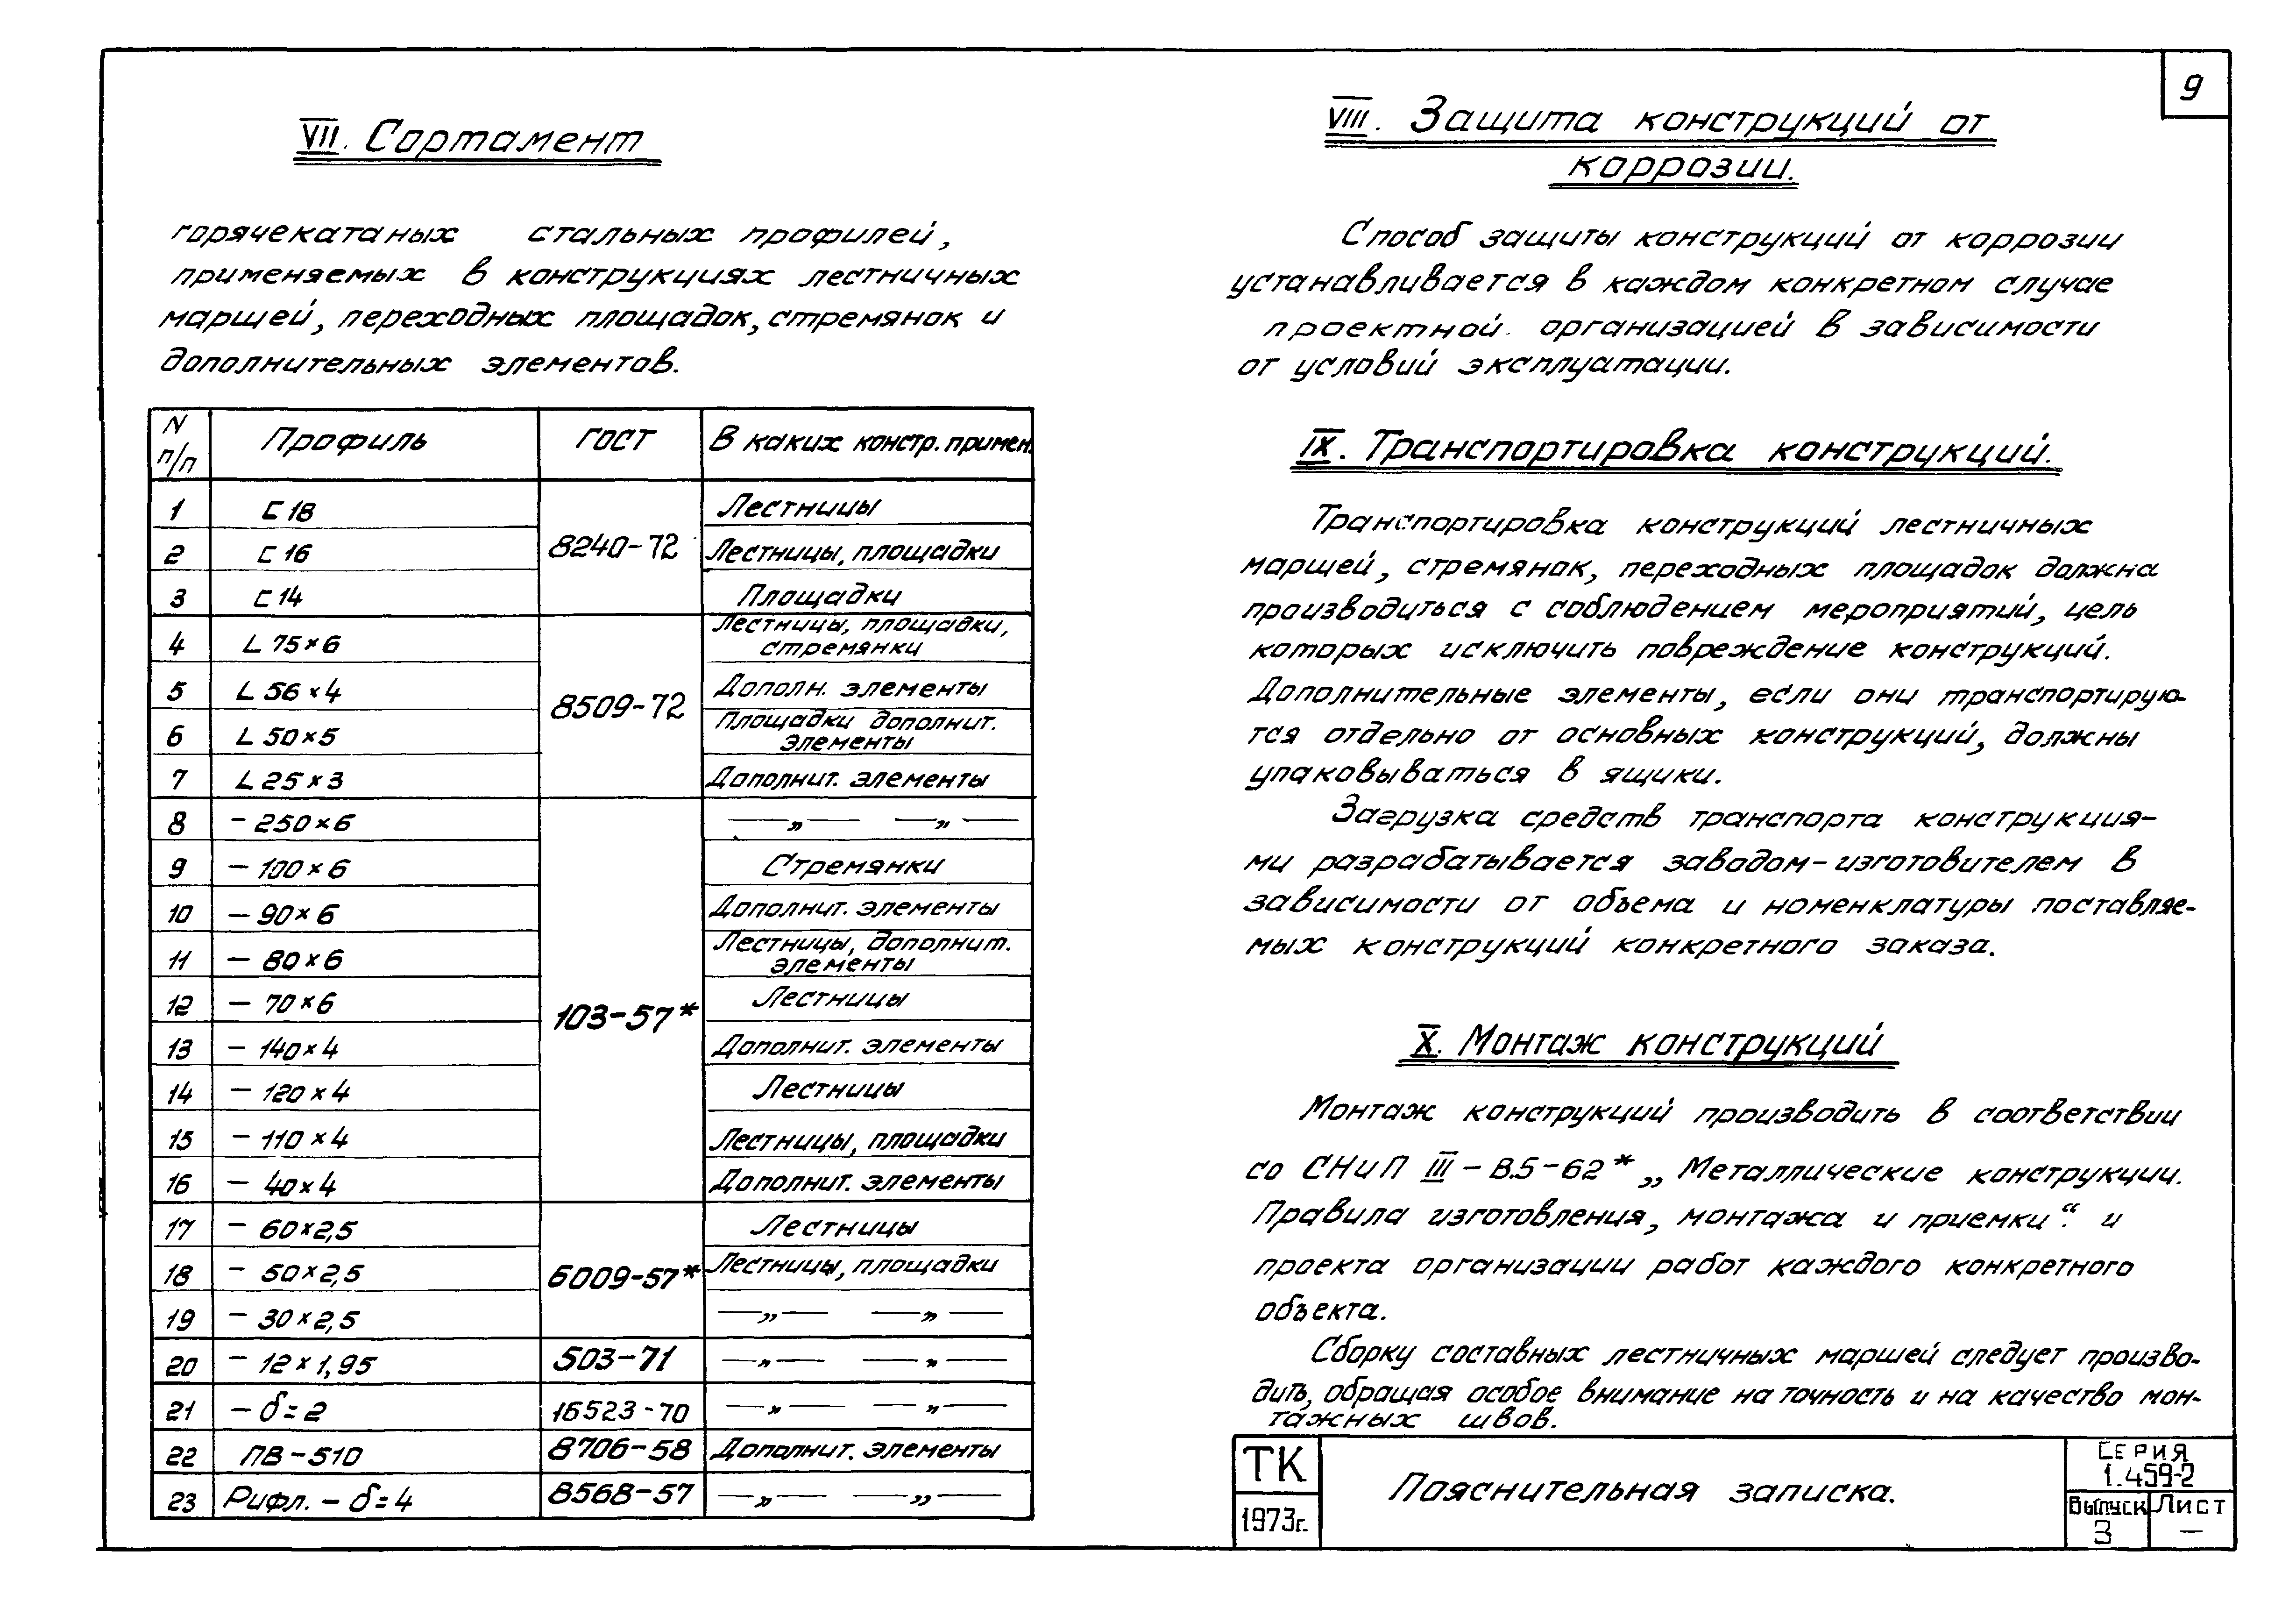 9
VII. Сортамент
горячекатаных стальных профилей,
применяемых в конструкциях лестничных
маршей, переходных площадок, стремянок и
дополнительных элементов.
N п/п Профиль ГОСТ В каких констр. примен.
1 [ 18 8240-72 Лестницы
2 [ 16 Лестницы, площадки
3 [ 14 Площадки
4 L 75×6 8509-72 Лестницы, площадки,
стремянки
5 L 56×4 Дополн. элементы
6 L 50×5 Площадки дополнит.
элементы
7 L 25×3 Дополнит. элементы
8 - 250×6 103-57* —„— —„—
9 - 100×6 Стремянки
10 - 90×6 Дополнит. элементы
11 - 80×6 Лестницы, дополнит.
элементы
12 - 70×6 Лестницы
13 - 140×4 Дополнит. элементы
14 - 120×4 Лестницы
15 - 110×4 Лестницы, площадки
16 - 40×4 Дополнит. элементы
17 - 60×2,5 6009-57* Лестницы
18 - 50×2,5 Лестницы, площадки
19 - 30×2,5 —„— —„—
20 - 12×1,95 503-71 —„— —„—
21 - δ=2 16523-70 —„— —„—
22 ПВ-510 8706-58 Дополнит. элементы
23 Рифл. - δ=4 8568-57 —„— —„—
VIII. Защита конструкций от
коррозии.
Способ защиты конструкций от коррозии
устанавливается в каждом конкретном случае
проектной организацией в зависимости
от условий эксплуатации.
IX. Транспортировка конструкций.
Транспортировка конструкций лестничных
маршей, стремянок, переходных площадок должна
производиться с соблюдением мероприятий, цель
которых исключить повреждение конструкций.
Дополнительные элементы, если они транспортирую-
тся отдельно от основных конструкций, должны
упаковываться в ящики.
Загрузка средств транспорта конструкция-
ми разрабатывается заводом-изготовителем в
зависимости от объема и номенклатуры поставляе-
мых конструкций конкретного заказа.
X. Монтаж конструкций
Монтаж конструкций производить в соответствии
со СНиП III-В.5-62* „Металлические конструкции.
Правила изготовления, монтажа и приемки“. и
проекта организации работ каждого конкретного
объекта.
Сборку составных лестничных маршей следует произво-
дить, обращая особое внимание на точность и на качество мон-
тажных швов.
ТК
1973г.
Пояснительная записка.
Серия
1.459-2
Выпуск Лист
3 —